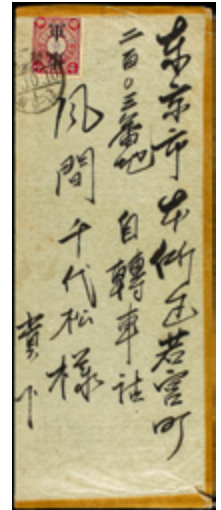 東京市本所区若宮町
二百〇三番地 自轉車社
風間千代松様
貴下
軍事